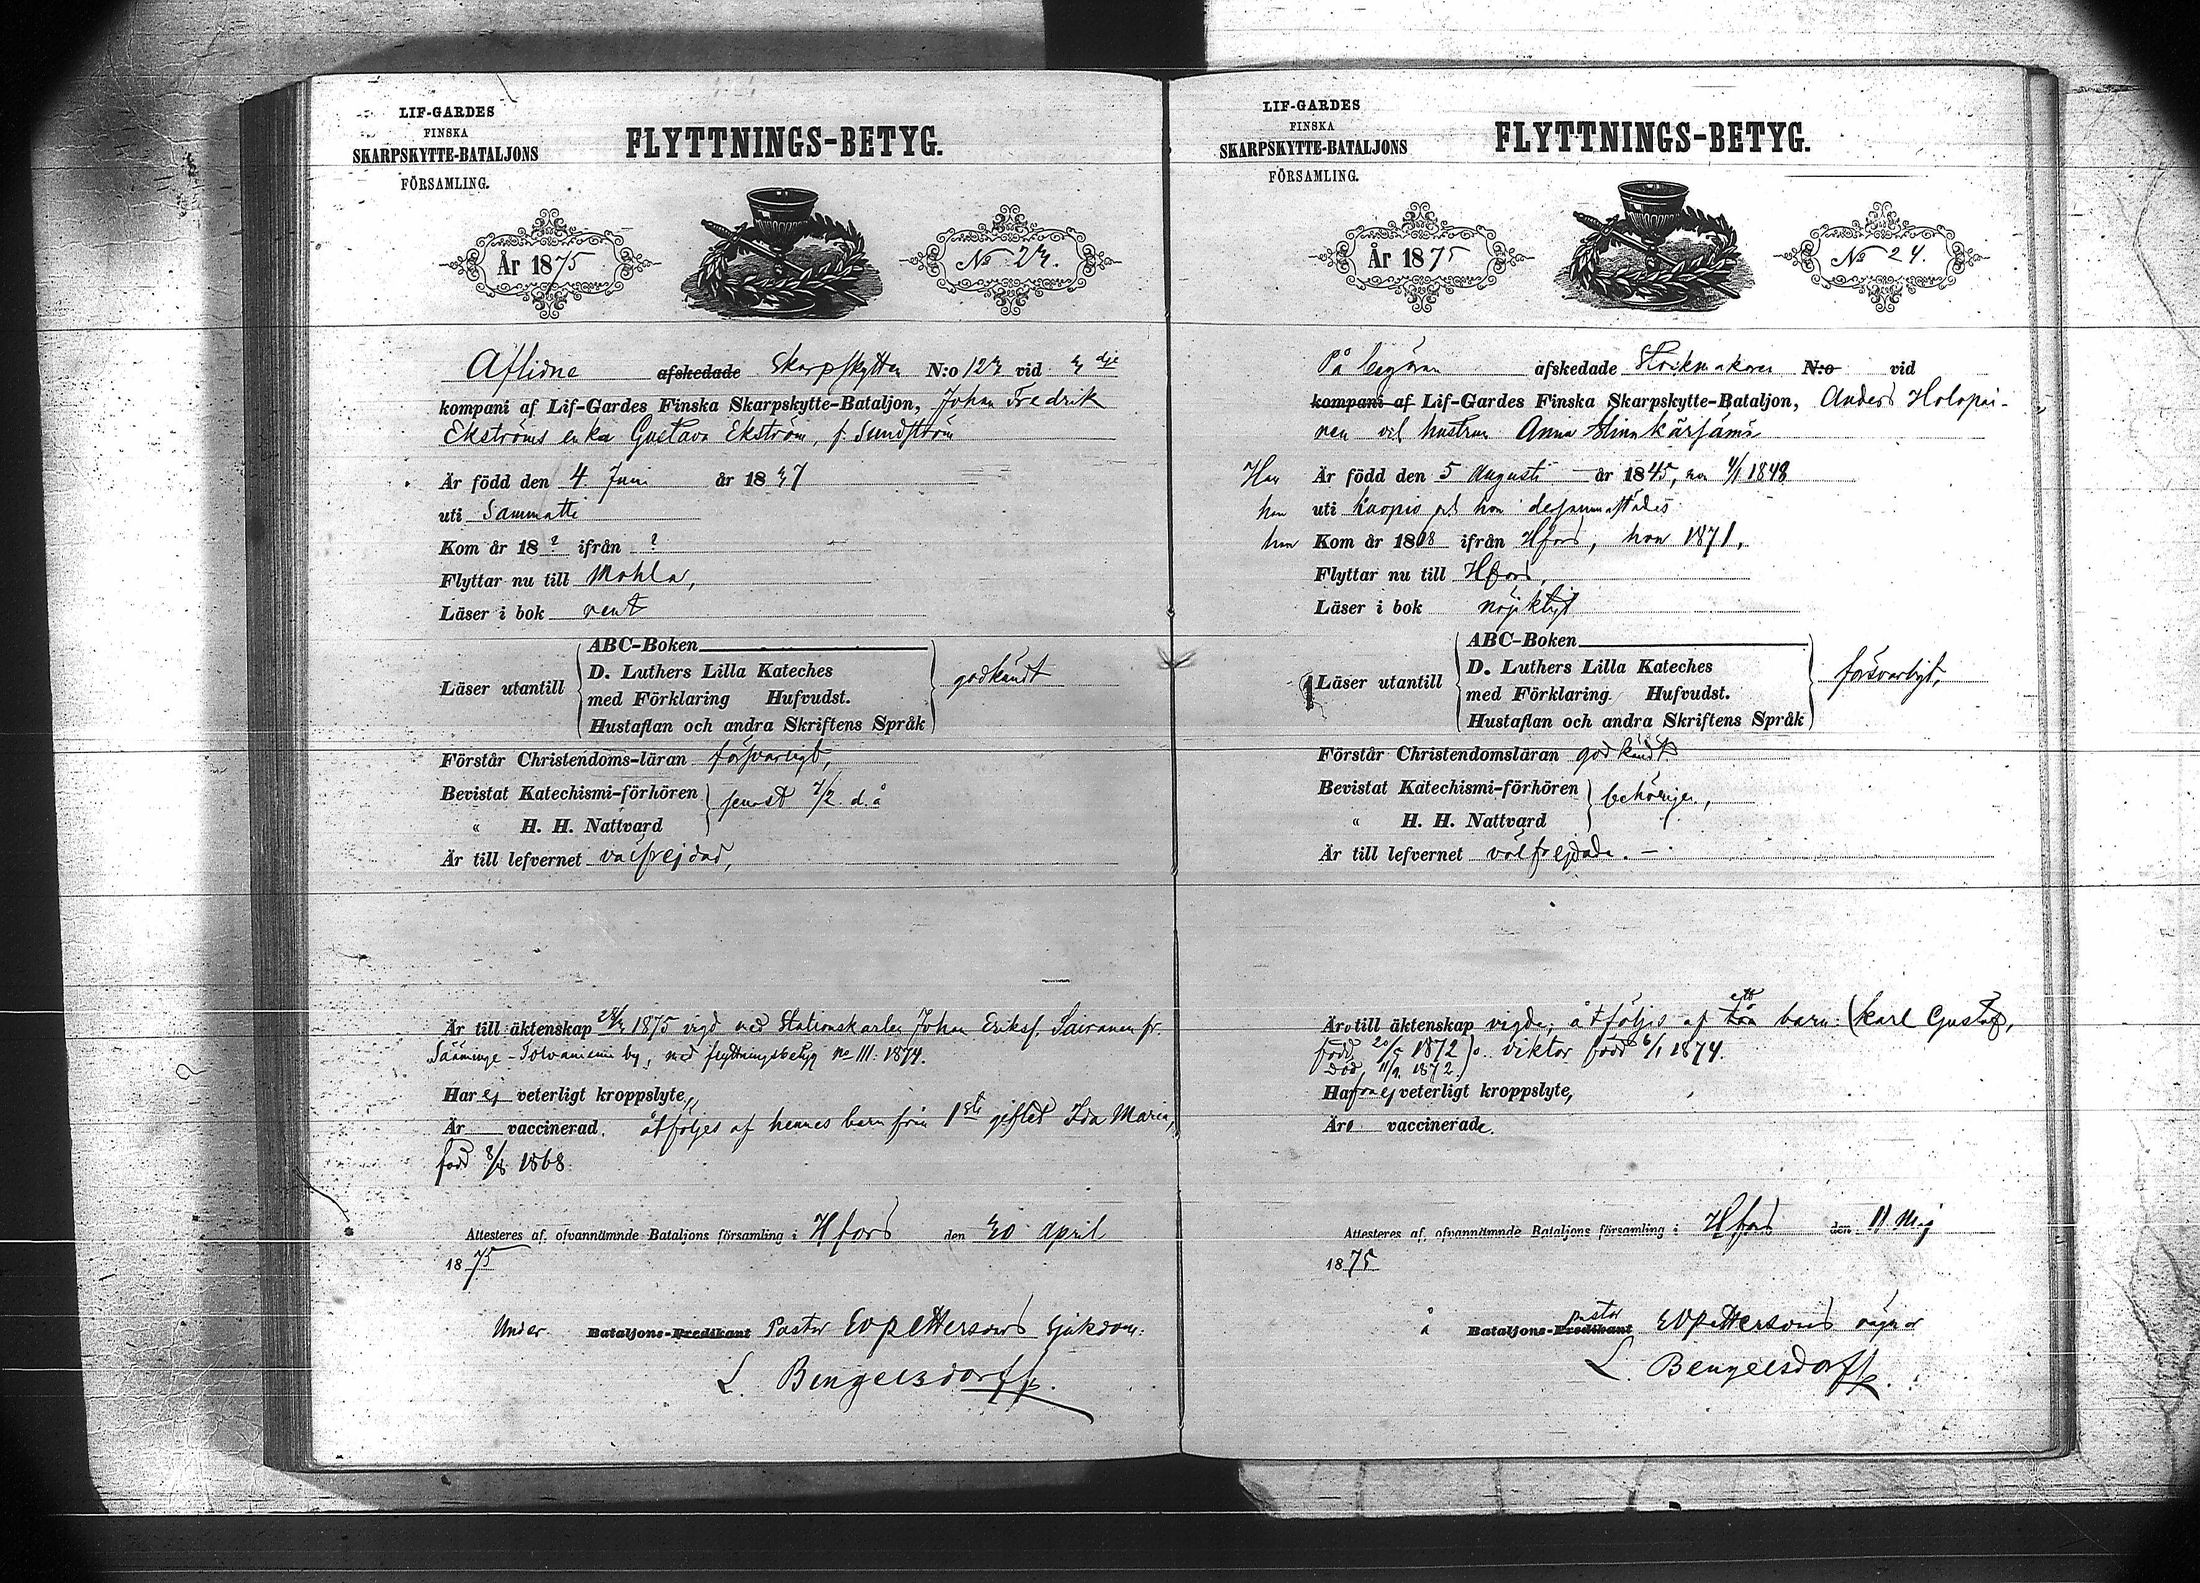 LIF-GARDES
FINSKA
SKARPSKYTTE-BATALJONS
FÖRSAMLING.
FLYTTNINGS-BETYG.
År 1875
No 23.
Aflidne afskedade Skarpskytten N:o 123 vid 3 dje
kompani af Lif-Gardes Finska Skarpskytte-Bataljon, Johan Fredrik
Ekströms enka Gustava Ekström, f. Sundström
Är född den 4 Juni år 1837
uti Sammatti
Kom år 18 ? ifrån ?
Flyttar nu till Mohla,
Läser i bok rent
Läser utantill
ABC-Boken
D. Luthers Lilla Kateches
med Förklaring Hufvudst.
Hustaflan och andra Skriftens Språk
godkändt
Förstår Christendoms-läran försvarligt,
Bevistat Katechismi-förhören
senast 7/2 d. å
" H. H. Nattvard
Är till lefvernet välfrejdad,
Är till äktenskap 28/3 1875 vigd med Stationskarlen Johan Eriksf. Sairanen fr.
by, med flyttningsbetyg no 111. 1874.
Har ej veterligt kroppslyte,
Är vaccinerad. åtföljes af hennes barn från 1sta giftet Ida Maria,
född 8/8 1868.
Attesteres af ofvannämnde Bataljons församling i Hfors den 30 April
1875
Under Bataljons-Predikant Pastor EVPettersons sjukdom:
L. Bengelsdorff.
LIF-GARDES
FINSKA
SKARPSKYTTE-BATALJONS
FÖRSAMLING.
FLYTTNINGS-BETYG.
År 1875
No 24.
På begäran afskedade N:o vid
kompani af Lif-Gardes Finska Skarpskytte-Bataljon, Anders Holopai-
nen och hustrun Anna
Han Är född den 5 Augusti år 1845, hon 4/1 1848
han uti Kuopio och hon dersammastädes
han Kom år 1868 ifrån Hfors, hon 1871.
Flyttar nu till Hfors,
Läser i bok nöjaktigt
Läser utantill
ABC-Boken
D. Luthers Lilla Kateches
med Förklaring Hufvudst.
Hustaflan och andra Skriftens Språk
försvarligt,
Förstår Christendomsläran godkändt
Bevistat Katechismi-förhören
behörigen,
" H. H. Nattvard
Är till lefvernet välfrejdade. –
Äro till äktenskap vigda, åtföljes af två ett barn: (Karl Gustaf,
född 20/5 1872) o. Viktor född 6/1 1874.
död 11/9 1872.)
Hafva ej veterligt kroppslyte,
Äro vaccinerade.
Attesteres af ofvannämnde Bataljons församling i Hfors den 11 Maj
1875
å Bataljons-Predikant pastor EVPettersons vägnar
L. Bengelsdorff.